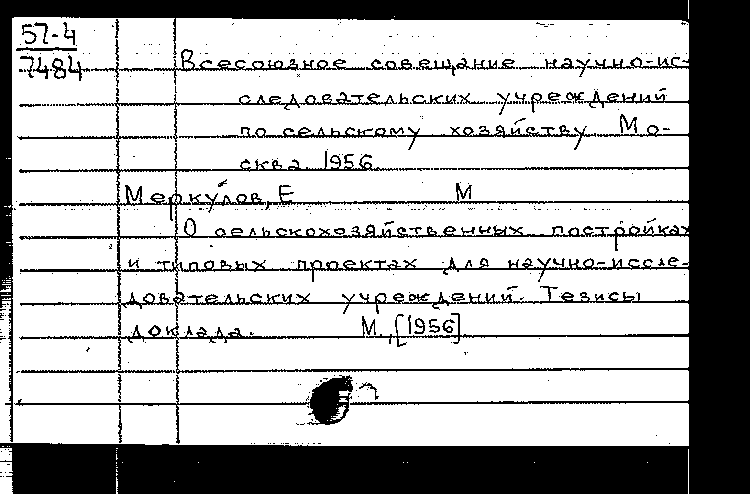 57-4
7484
Всесоюзное совещание научно-ис-
следовательских учреждений
по сельскому хозяйству Мо-
сква. 1956.
Меркулов, Е М
О сельскохозяйственных постройках
и типовых проектах для научно-иссле-
довательских учреждений. Тезисы
доклада. М., [1956]